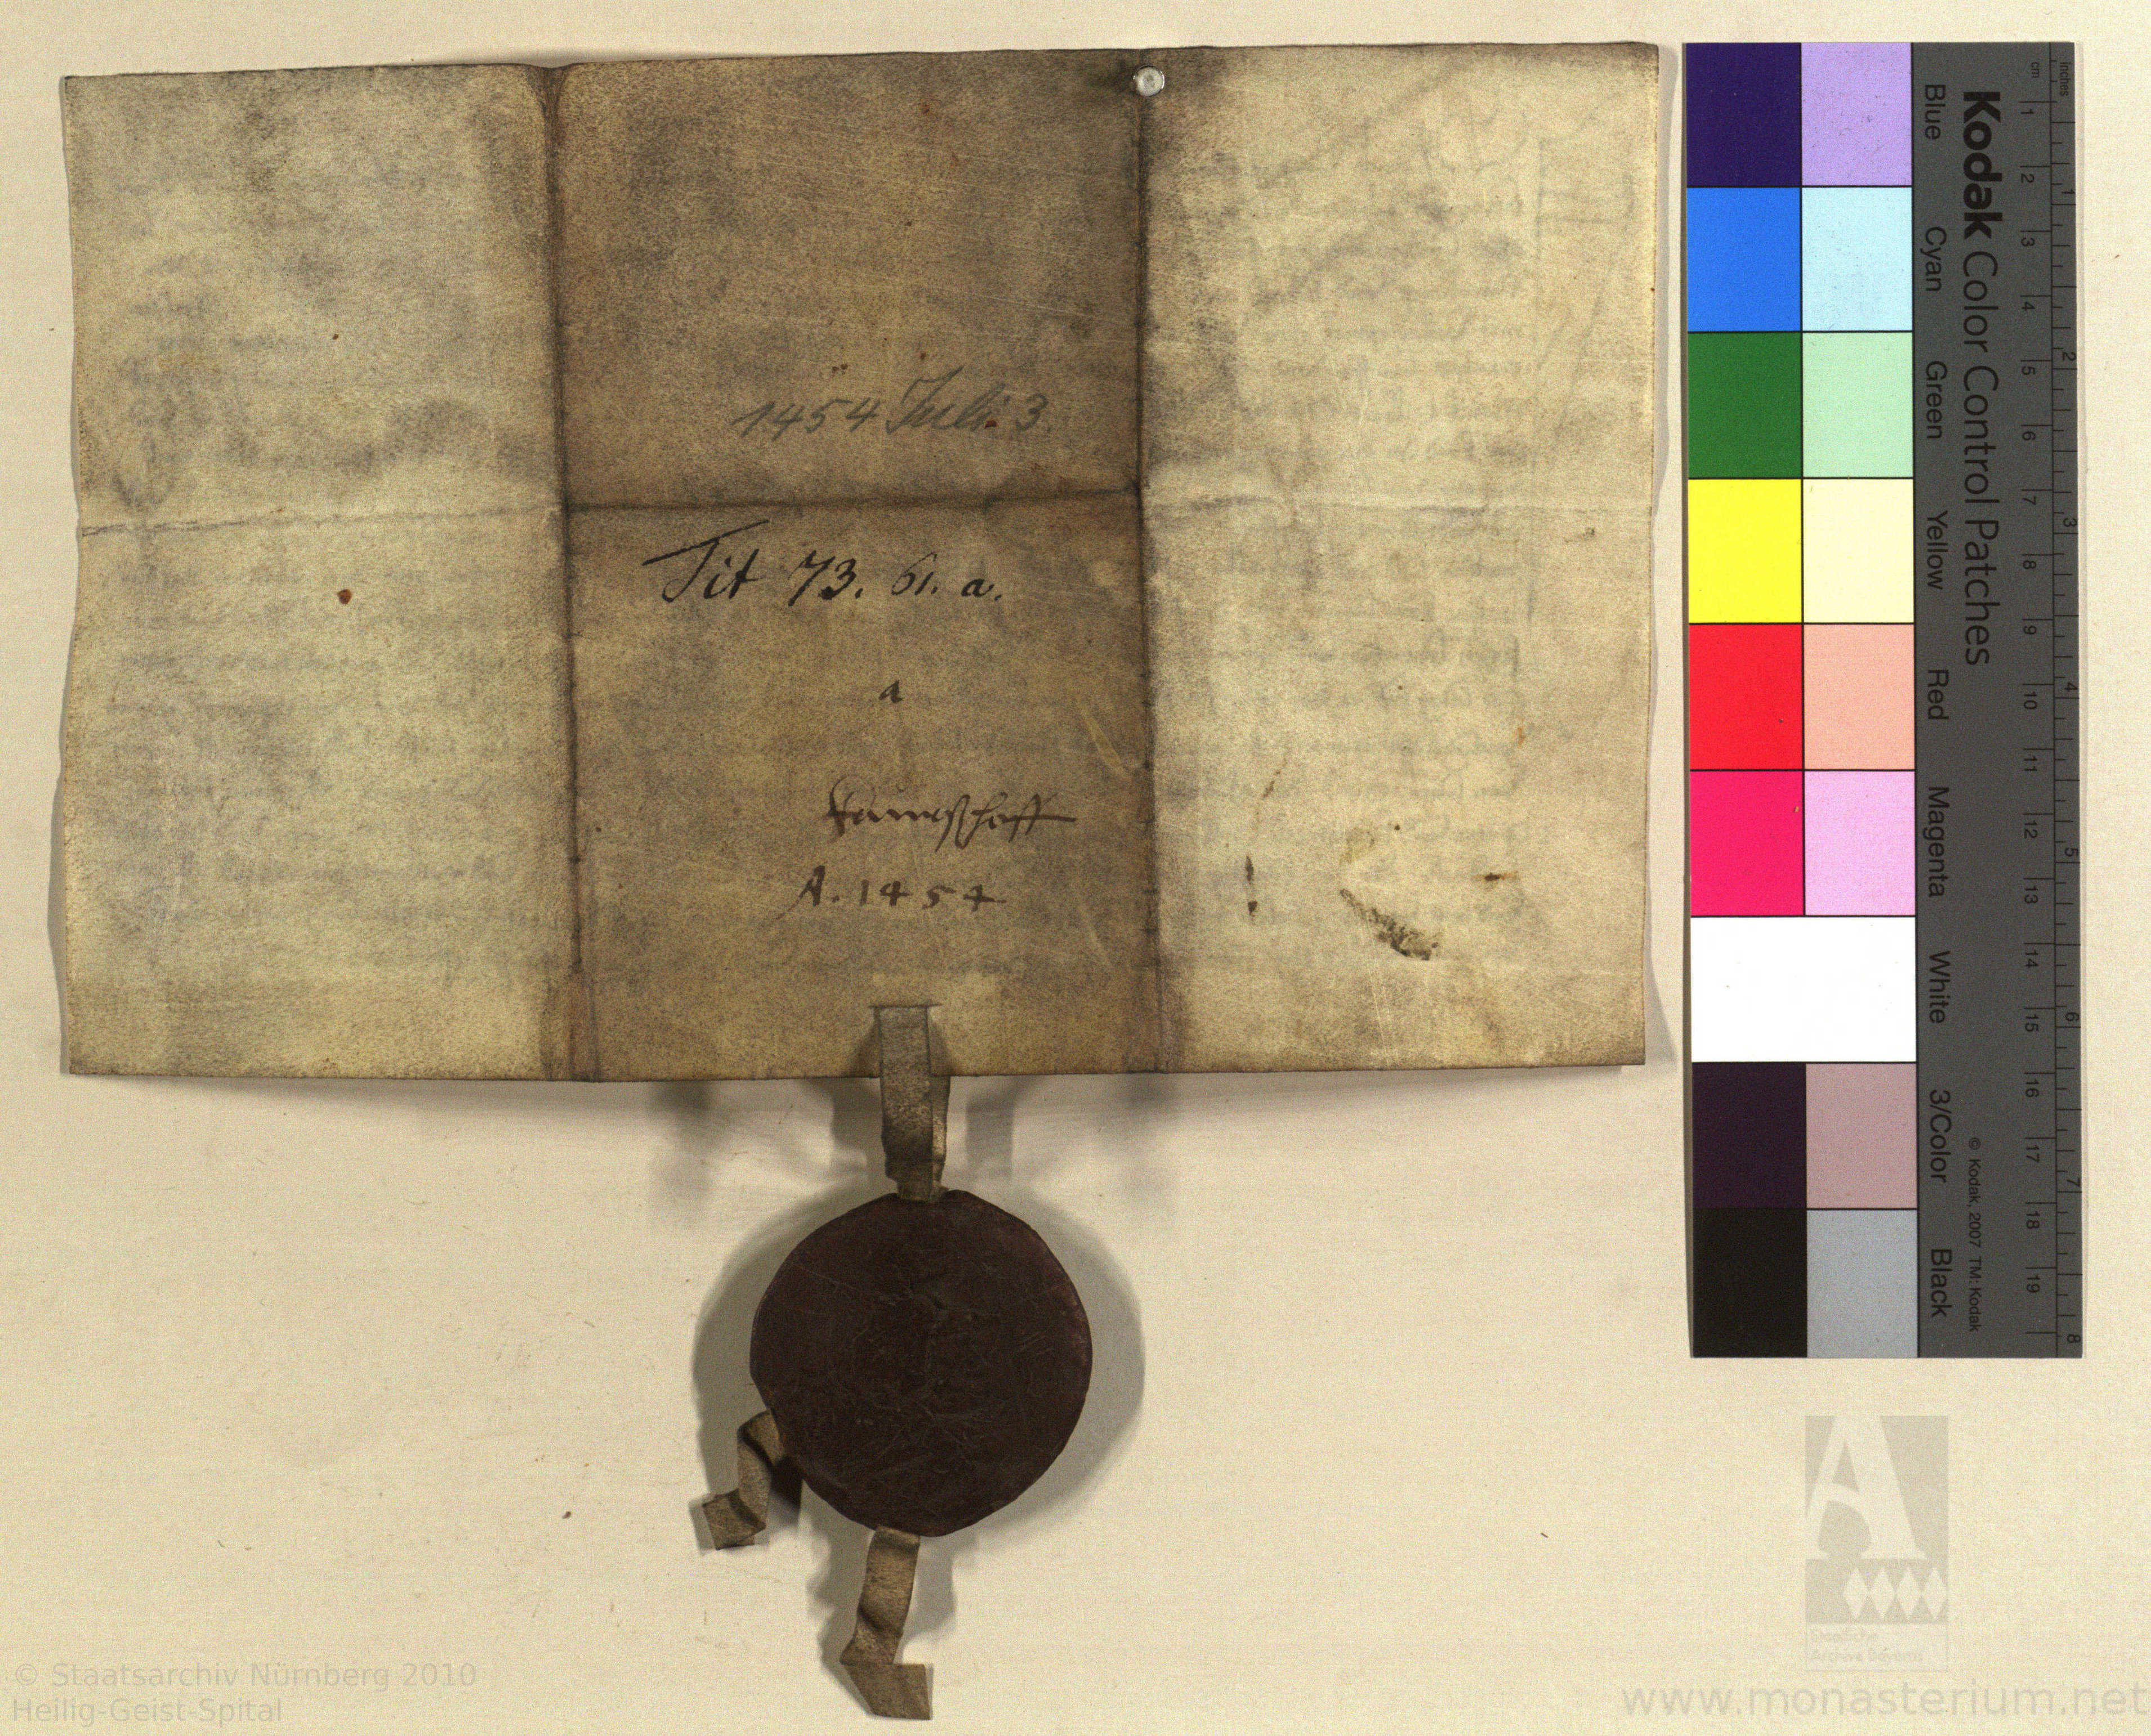 1454 Juli 3.
Tit 73. 61. a.
a
A. 1454
Kodak Color Control Patches
Blue Cyan Green Yellow Red Magenta White 3/Color Black
© Kodak, 2007 TM: Kodak
cm 1 2 3 4 5 6 7 8 9 10 11 12 13 14 15 16 17 18 19
inches 1 2 3 4 5 6 7 8
Staatliche
Archive Bayerns
© Staatsarchiv Nürnberg 2010
Heilig-Geist-Spital
www.monasterium.net